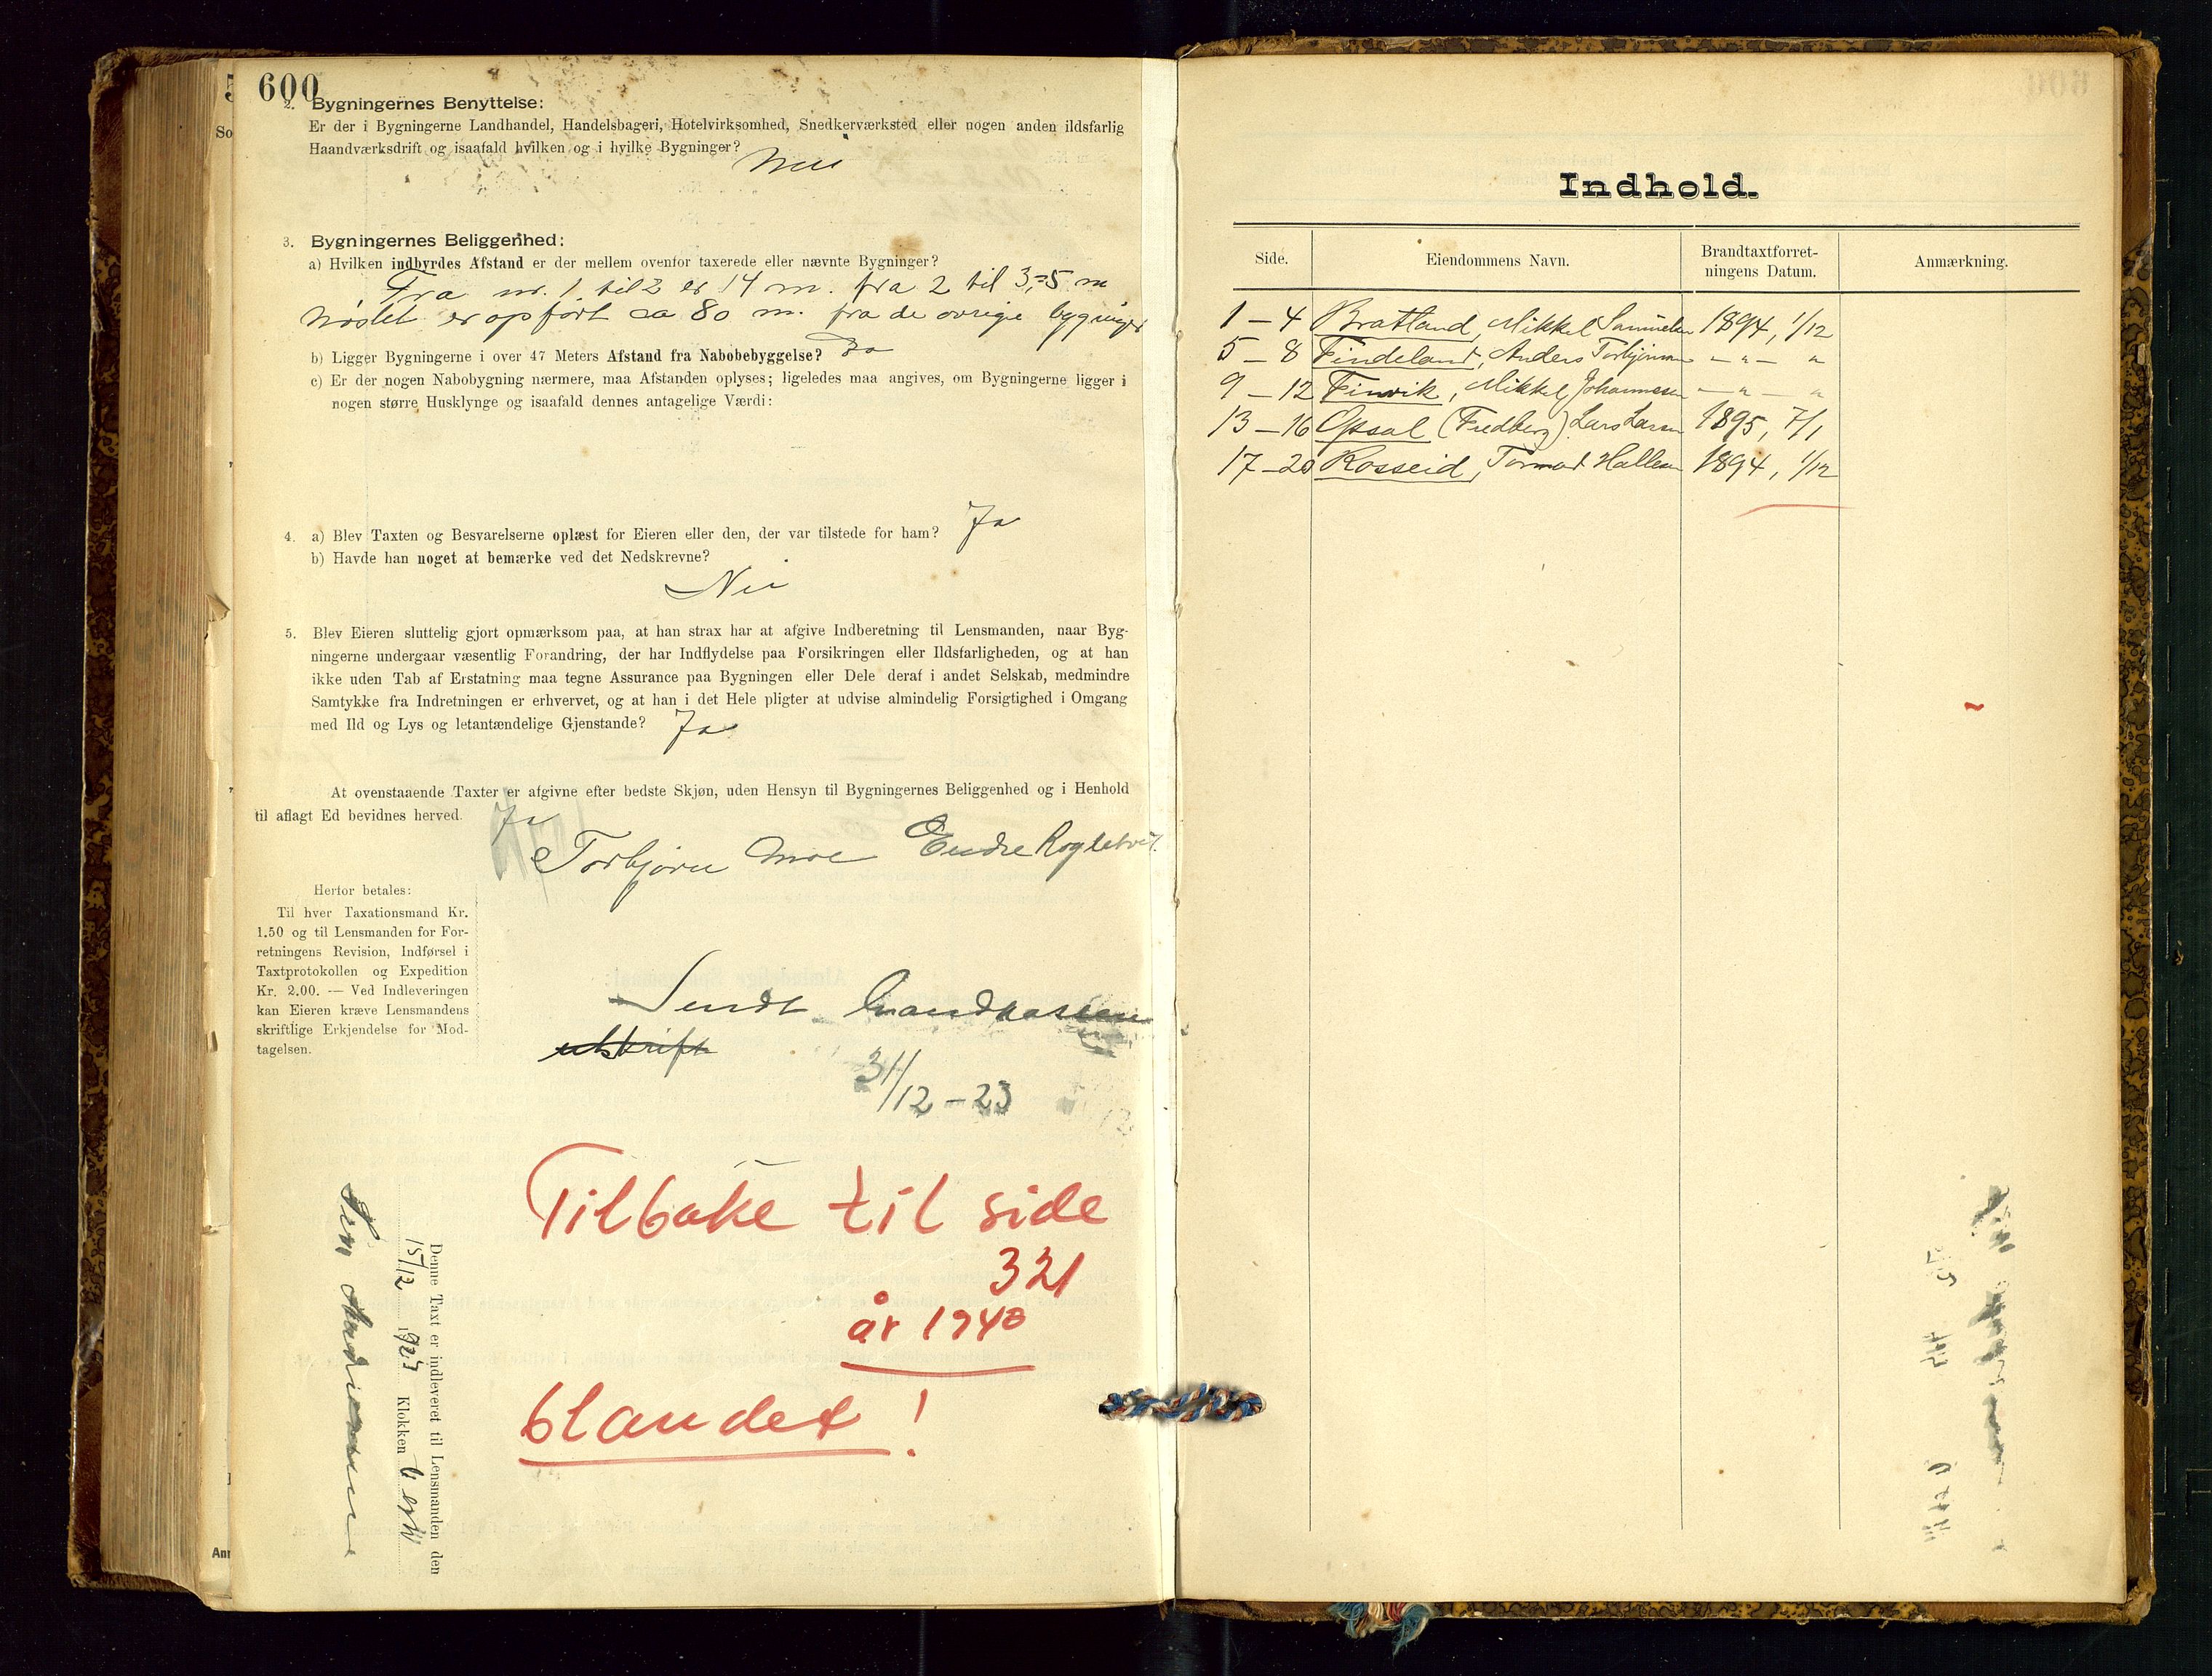 600
2. Bygningernes Benyttelse:
Er der i Bygningerne Landhandel, Handelsbageri, Hotelvirksomhed, Snedkerværksted eller nogen anden ildsfarlig
Haandværksdrift og isaafald hvilken og i hvilke Bygninger? Nei
3. Bygningernes Beliggenhed:
a) Hvilken indbyrdes Afstand er der mellem ovenfor taxerede eller nævnte Bygninger?
Fra nr. 1 til 2 er 14 m. fra 2 til 3, 5 m
Nöstet er opført ca 80 m. fra de øvrige bygninger
b) Ligger Bygningerne i over 47 Meters Afstand fra Nabobebyggelse? Ja
c) Er der nogen Nabobygning nærmere, maa Afstanden oplyses; ligeledes maa angives, om Bygningerne ligger i
nogen større Husklynge og isaafald dennes antagelige Værdi:
4. a) Blev Taxten og Besvarelserne oplæst for Eieren eller den, der var tilstede for ham? Ja
b) Havde han noget at bemærke ved det Nedskrevne?
Nei
5. Blev Eieren sluttelig gjort opmærksom paa, at han strax har at afgive Indberetning til Lensmanden, naar Byg-
ningerne undergaar væsentlig Forandring, der har Indflydelse paa Forsikringen eller Ildsfarligheden, og at han
ikke uden Tab af Erstatning maa tegne Assurance paa Bygningen eller Dele deraf i andet Selskab, medmindre
Samtykke fra Indretningen er erhvervet, og at han i det Hele pligter at udvise almindelig Forsigtighed i Omgang
med Ild og Lys og letantændelige Gjenstande? Ja
At ovenstaaende Taxter er afgivne efter bedste Skjøn, uden Hensyn til Bygningernes Beliggenhed og i Henhold
til aflagt Ed bevidnes herved. Ja
Torbjørn Moe Endre
Herfor betales:
Til hver Taxationsmand Kr.
1.50 og til Lensmanden for For-
retningens Revision, Indførsel i
Taxtprotokollen og Expedition
Kr. 2.00. — Ved Indleveringen
kan Eieren kræve Lensmandens
skriftlige Erkjendelse for Mod-
tagelsen.
Sendt brandkassen
utskrift
31/12 - 23
Tilbake til side
321
år 1940
blandet!
Denne Taxt er indleveret til Lensmanden den
15/12 1923 Klokken 6 em
Indhold.
Side. Eiendommens Navn. Brandtaxtforret-
ningens Datum. Anmærkning.
1 – 4 Bratland, Mikkel Samuelsen 1894, 1/12
5 – 8 Findeland, Anders Torbjörnsen – " – "
9 – 12 Finvik, Mikkel Johannesen – " – "
13 – 16 Opsal (Fredberg) Lars Larsen 1895, 7/1
17 – 20 Rosseid, Tormod Hallesen 1894, 1/12